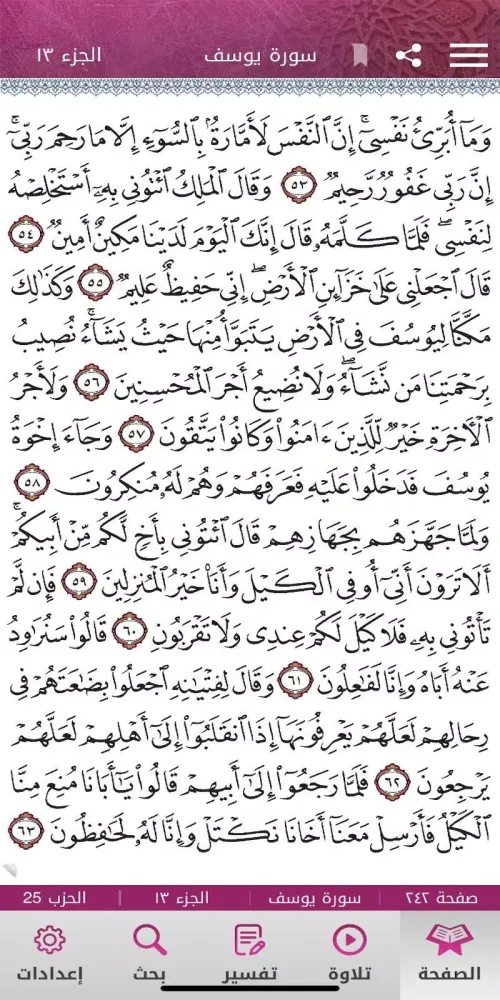 سورة يوسف
الجزء ١٣
وَمَآ أُبَرِّئُ نَفْسِىٓ ۚ إِنَّ ٱلنَّفْسَ لَأَمَّارَةٌۢ بِٱلسُّوٓءِ إِلَّا مَا رَحِمَ رَبِّىٓ ۚ
إِنَّ رَبِّى غَفُورٌ رَّحِيمٌ ٥٣ وَقَالَ ٱلْمَلِكُ ٱئْتُونِى بِهِۦٓ أَسْتَخْلِصْهُ
لِنَفْسِى ۖ فَلَمَّا كَلَّمَهُۥ قَالَ إِنَّكَ ٱلْيَوْمَ لَدَيْنَا مَكِينٌ أَمِينٌ ٥٤
قَالَ ٱجْعَلْنِى عَلَىٰ خَزَآئِنِ ٱلْأَرْضِ ۖ إِنِّى حَفِيظٌ عَلِيمٌ ٥٥ وَكَذَٰلِكَ
مَكَّنَّا لِيُوسُفَ فِى ٱلْأَرْضِ يَتَبَوَّأُ مِنْهَا حَيْثُ يَشَآءُ ۚ نُصِيبُ
بِرَحْمَتِنَا مَن نَّشَآءُ ۖ وَلَا نُضِيعُ أَجْرَ ٱلْمُحْسِنِينَ ٥٦ وَلَأَجْرُ
ٱلْـَٔاخِرَةِ خَيْرٌ لِّلَّذِينَ ءَامَنُوا۟ وَكَانُوا۟ يَتَّقُونَ ٥٧ وَجَآءَ إِخْوَةُ
يُوسُفَ فَدَخَلُوا۟ عَلَيْهِ فَعَرَفَهُمْ وَهُمْ لَهُۥ مُنكِرُونَ ٥٨
وَلَمَّا جَهَّزَهُم بِجَهَازِهِمْ قَالَ ٱئْتُونِى بِأَخٍ لَّكُم مِّنْ أَبِيكُمْ ۚ
أَلَا تَرَوْنَ أَنِّىٓ أُوفِى ٱلْكَيْلَ وَأَنَا۠ خَيْرُ ٱلْمُنزِلِينَ ٥٩ فَإِن لَّمْ
تَأْتُونِى بِهِۦ فَلَا كَيْلَ لَكُمْ عِندِى وَلَا تَقْرَبُونِ ٦٠ قَالُوا۟ سَنُرَٰوِدُ
عَنْهُ أَبَاهُ وَإِنَّا لَفَٰعِلُونَ ٦١ وَقَالَ لِفِتْيَٰنِهِ ٱجْعَلُوا۟ بِضَٰعَتَهُمْ فِى
رِحَالِهِمْ لَعَلَّهُمْ يَعْرِفُونَهَآ إِذَا ٱنقَلَبُوٓا۟ إِلَىٰٓ أَهْلِهِمْ لَعَلَّهُمْ
يَرْجِعُونَ ٦٢ فَلَمَّا رَجَعُوٓا۟ إِلَىٰٓ أَبِيهِمْ قَالُوا۟ يَٰٓأَبَانَا مُنِعَ مِنَّا
ٱلْكَيْلُ فَأَرْسِلْ مَعَنَآ أَخَانَا نَكْتَلْ وَإِنَّا لَهُۥ لَحَٰفِظُونَ ٦٣
صفحة ٢٤٢ | سورة يوسف | الجزء ١٣ | الحزب 25
الصفحة تلاوة تفسير بحث إعدادات